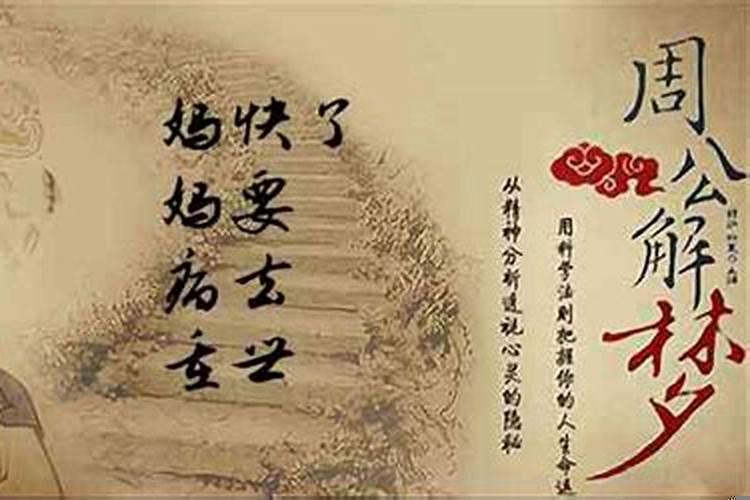 妈妈病重
快要去世
了
周公解梦
用科学法则把握你的人生命运
从精神分析道说心灵的隐秘